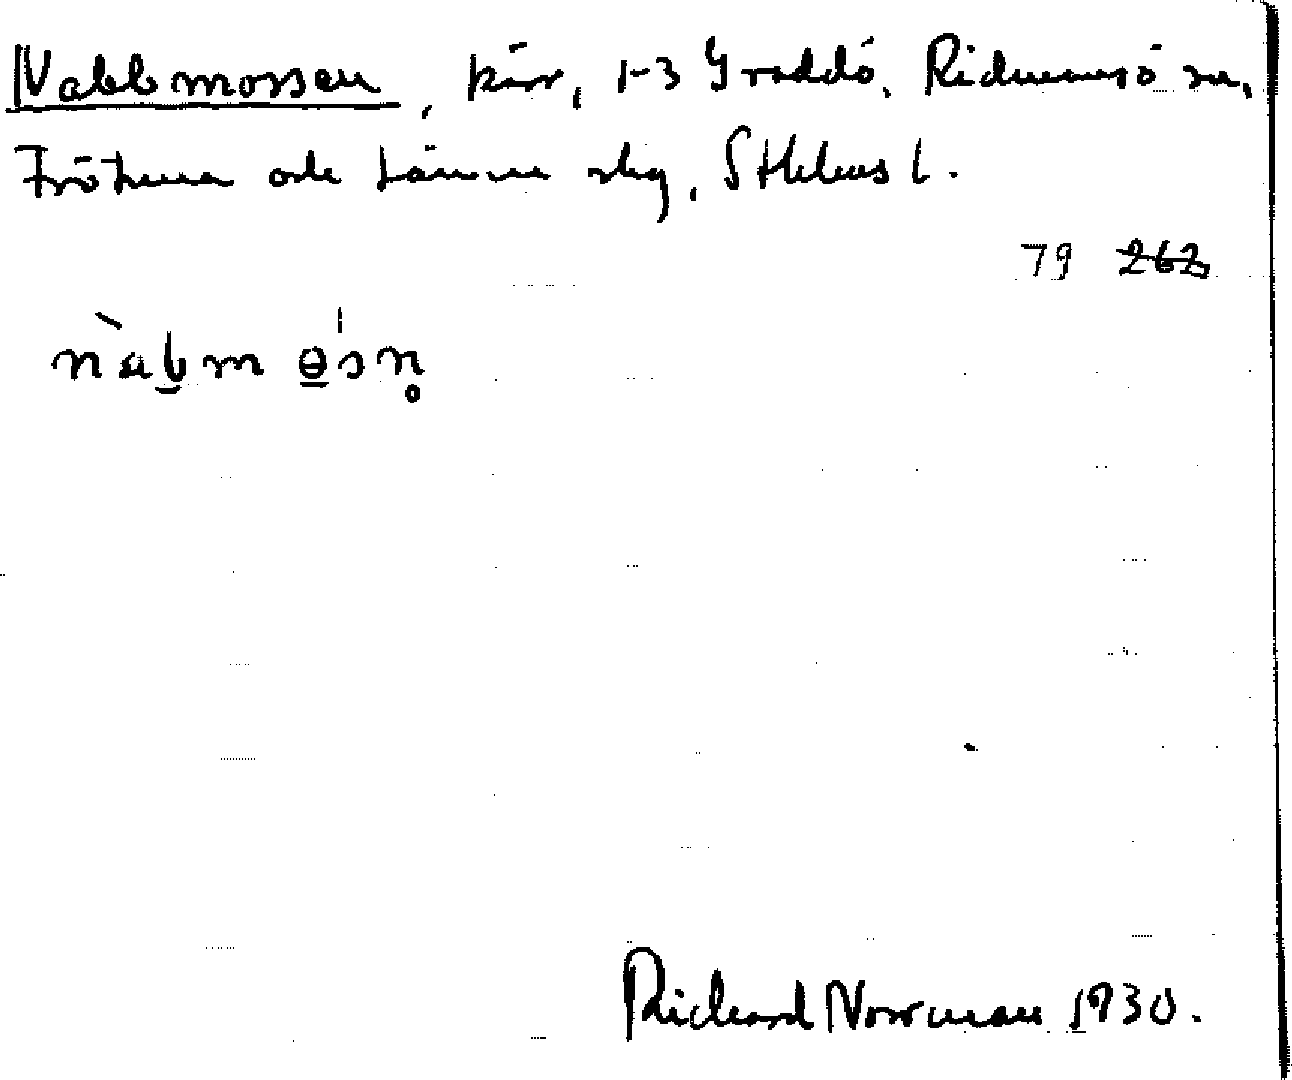 Nabbmossen, kärr, 1-3 Gräddö, Rådmansö sn,
Frötuna och Länna skg, Sthlms l.
79 262
nàbmɵ́sn̥
Richard Norrman 1930.